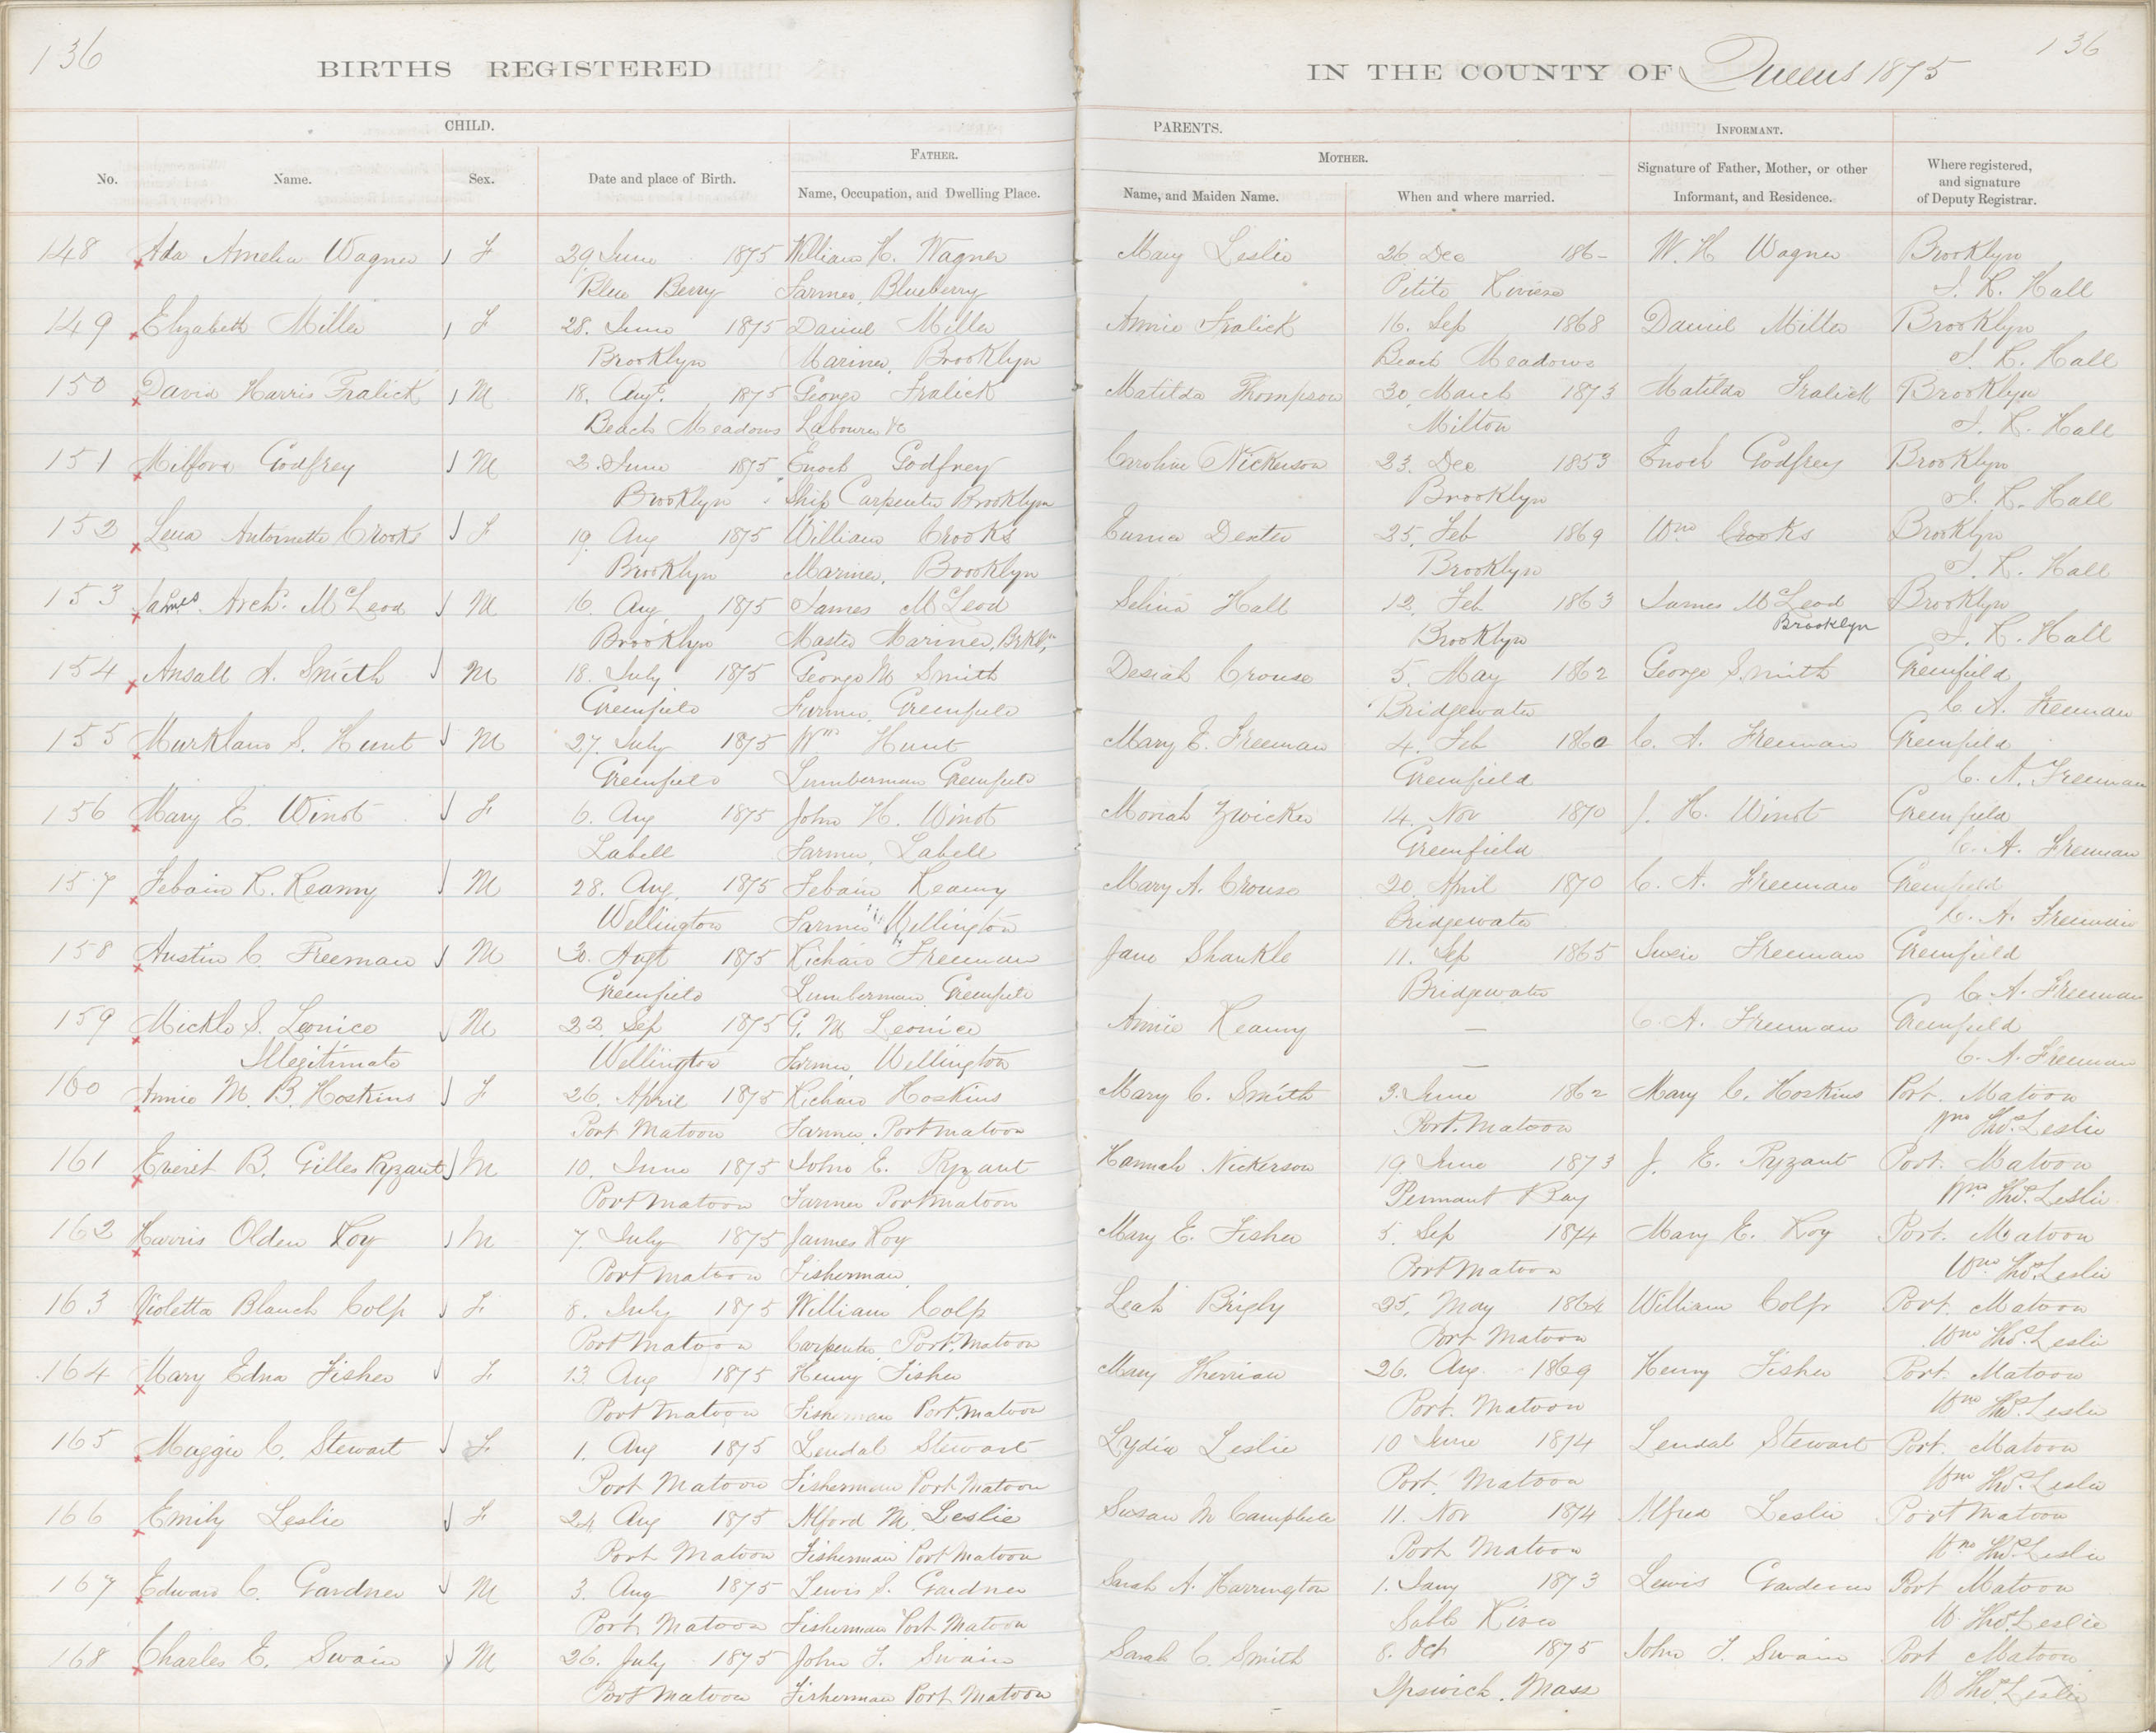 136
136
BIRTHS REGISTERED
IN THE COUNTY OF Queens 1875
CHILD.
PARENTS.
INFORMANT.
FATHER.
MOTHER.
No.
Name.
Sex.
Date and place of Birth.
Name, Occupation, and Dwelling Place.
Name, and Maiden Name.
When and where married.
Signature of Father, Mother, or other
Informant, and Residence.
Where registered,
and signature
of Deputy Registrar.
148 Ada Amelia Wagner F 29 June 1875 William H. Wagner Mary Leslie 26 Dec 186- W. H Wagner Brooklyn
Blue Berry Farmer, Blueberry Petite Riviere Hall
149 Elizabeth Miller F 28. June 1875 Daniel Miller Annie Fralick 16. Sep 1868 Daniel Miller Brooklyn
Brooklyn Mariner, Brooklyn Beach Meadows Hall
150 David Harris Fralick M 18. Augt. 1875 George Fralick Matilda Thompson 30. March 1873 Matilda Fralick Brooklyn
Beach Meadows Labourer &c Milton Hall
151 Milford Godfrey M 2. June 1875 Enoch Godfrey Caroline Nickerson 23. Dec 1853 Enoch Godfrey Brooklyn
Brooklyn Ship Carpenter Brooklyn Brooklyn Hall
152 Lena Antoinette Crooks F 19. Aug 1875 William Crooks Dexter 25. Feb 1869 Wm Crooks Brooklyn
Brooklyn Mariner, Brooklyn Brooklyn Hall
153 James Archd. McLeod M 16. Aug 1875 James McLeod Selina Hall 12. Feb 1863 James McLeod Brooklyn
Brooklyn Master Mariner, Brooklyn Brooklyn Hall
154 Ansall A. Smith M 18. July 1875 George M Smith Desiah Crouse 5. May 1862 George Smith Greenfield
Greenfield Farmer, Greenfield Bridgewater C. A. Freeman
155 Markland S. Hunt M 27. July 1875 Wm Hunt Mary E. Freeman 4. Feb 1860 C. A. Freeman Greenfield
Greenfield Lumberman Greenfield Greenfield C. A. Freeman
156 Mary E. Winot F 6. Aug 1875 John H. Winot Moriah Zwicker 14. Nov 1870 J. H. Winot Greenfield
Labell Farmer, Labell Greenfield C. A. Freeman
157 Febain R. Reamy M 28. Aug. 1875 Febain Reamy Mary A. Crouse 20. April 1870 C. A. Freeman Greenfield
Wellington Farmer Wellington Bridgewater C. A. Freeman
158 Austin C. Freeman M 30. Augt 1875 Richard Freeman Jane Shankle 11. Sep 1865 Freeman Greenfield
Greenfield Lumberman, Greenfield Bridgewater C. A. Freeman
159 Mickle S. Leonice M 22. Sep 1875 G. M Leonice Annie Reamy — C. A. Freeman Greenfield
Illegitimate Wellington Farmer, Wellington — C. A. Freeman
160 Annie M. B. Hoskins F 26. April 1875 Richard Hoskins Mary C. Smith 3. June 1862 Mary C. Hoskins Port. Matoon
Port Matoon Farmer, Port matoon Port. Matoon Wm Thos. Leslie
161 Everet B. Gilles Ryzant M 10. June 1875 John E. Ryzant Hannah Nickerson 19. June 1873 J. E. Ryzant Port. Matoon
Port Matoon Farmer Port Matoon Pennant Bay Wm Thos. Leslie
162 Harris Olden Roy M 7. July 1875 James Roy Mary E. Fisher 5. Sep 1874 Mary E. Roy Port. Matoon
Port matoon Fisherman, Port Matoon Wm Thos. Leslie
163 Violetta Blanch Colp F 8. July 1875 William Colp Leah Brigby 25. May 1864 William Colp Port. Matoon
Port Matoon Carpenter, Port. Matoon Port Matoon Wm Thos. Leslie
164 Mary Edna Fisher F 13. Aug 1875 Henry Fisher Mary 26. Aug. 1869 Henry Fisher Port. Matoon
Port matoon Fisherman Port. matoon Port. Matoon Wm Thos. Leslie
165 Maggie C. Stewart F 1. Aug 1875 Lendal Stewart Lydia Leslie 10 June 1874 Lendal Stewart Port. Matoon
Port Matoon Fisherman Port Matoon Port. Matoon Wm Thos. Leslie
166 Emily Leslie F 24 Aug 1875 Alford M. Leslie Susan M Campbell 11. Nov 1874 Alfred Leslie Port Matoon
Port Matoon Fisherman Port Matoon Port Matoon Wm Thos. Leslie
167 Edward C. Gardner M 3. Aug 1875 Lewis S. Gardner Sarah A. Harrington 1. Jany 1873 Lewis Gardner Port Matoon
Port Matoon Fisherman Port Matoon Sable River W Thos. Leslie
168 Charles E. Swain M 26. July 1875 John T. Swain Sarah C. Smith 8. Oct 1875 John T. Swain Port Matoon
Port Matoon Fisherman Port Matoon Ipswich. Mass W Thos. Leslie